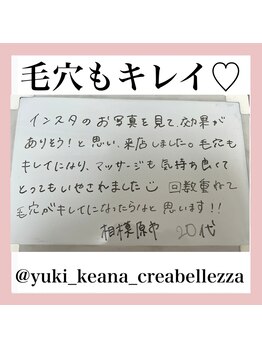 毛穴もキレイ♡
インスタのお写真を見て、効果が
ありそう！と思い、来店しました。毛穴も
キレイになり、マッサージも気持ち良くて
とってもいやされました 回数重ねて
毛穴がキレイになったらなと思います！！
相模原市 20代
@yuki_keana_creabellezza